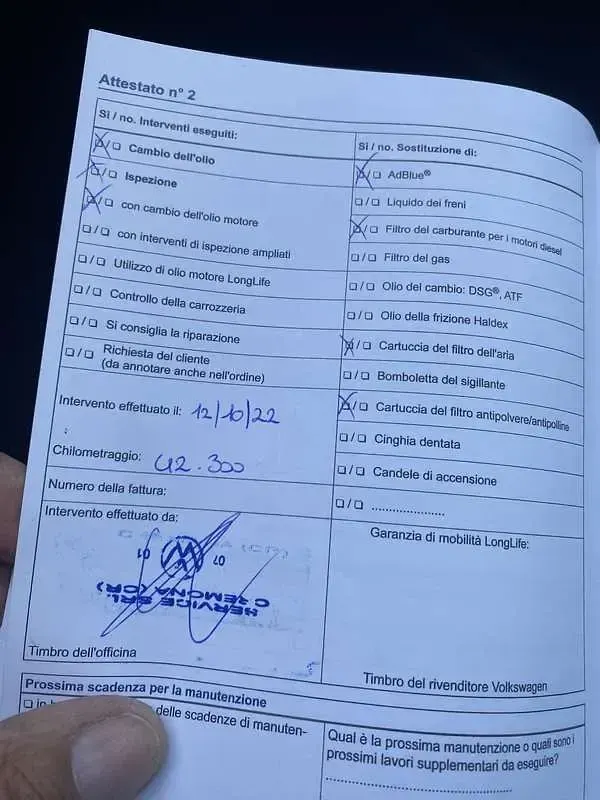 Attestato n° 2
Si / no. Interventi eseguiti:
☒/☐ Cambio dell'olio
☒/☐ Ispezione
☒/☐ con cambio dell'olio motore
☐/☐ con interventi di ispezione ampliati
☐/☐ Utilizzo di olio motore LongLife
☐/☐ Controllo della carrozzeria
☐/☐ Si consiglia la riparazione
☐/☐ Richiesta del cliente
(da annotare anche nell'ordine)
Intervento effettuato il: 12/10/22
Chilometraggio: 42.300
Numero della fattura:
Intervento effettuato da:
01 07
SERVICE SRL
CREMONA (CR)
Timbro dell'officina
Si / no. Sostituzione di:
☒/☐ AdBlue®
☐/☐ Liquido dei freni
☒/☐ Filtro del carburante per i motori diesel
☐/☐ Filtro del gas
☐/☐ Olio del cambio: DSG®, ATF
☐/☐ Olio della frizione Haldex
☒/☐ Cartuccia del filtro dell'aria
☐/☐ Bomboletta del sigillante
☒/☐ Cartuccia del filtro antipolvere/antipolline
☐/☐ Cinghia dentata
☐/☐ Candele di accensione
☐/☐ ....................
Garanzia di mobilità LongLife:
Timbro del rivenditore Volkswagen
Prossima scadenza per la manutenzione
☐ in delle scadenze di manuten-
Qual è la prossima manutenzione o quali sono i
prossimi lavori supplementari da eseguire?